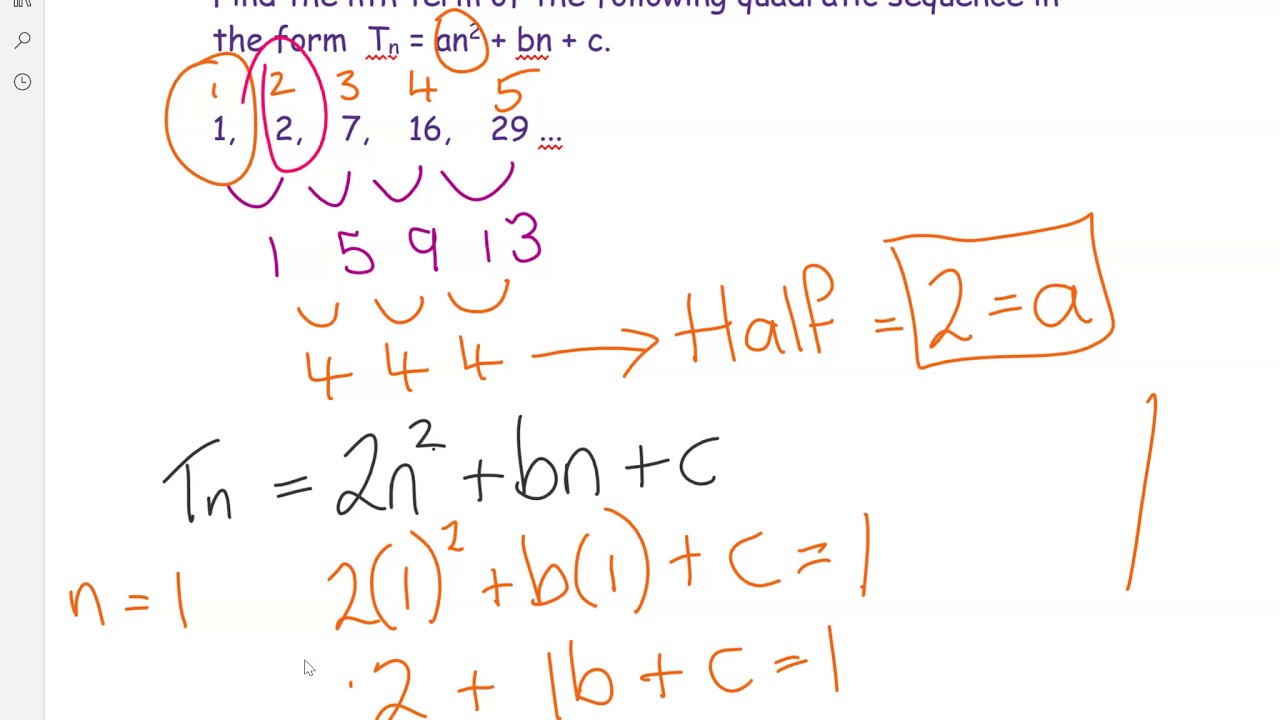 Find the nth term of the following quadratic sequence in
the form Tn = an² + bn + c.
1 2 3 4 5
1, 2, 7, 16, 29 ...
1 5 9 13
4 4 4 → Half = 2 = a
Tn = 2n² + bn + c
n = 1 2(1)² + b(1) + c = 1
2 + 1b + c = 1